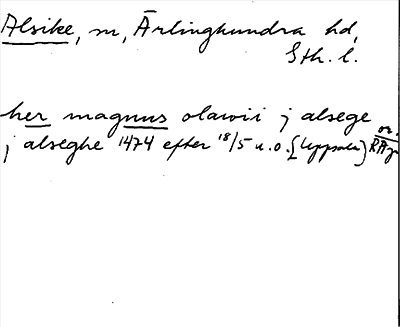 Alsike, sn, Ärlinghundra hd,
Sth. l.
her magnus olawii j alsege or.
j alseghe 1474 efter 18/5 u.o. [Uppsala] RAp